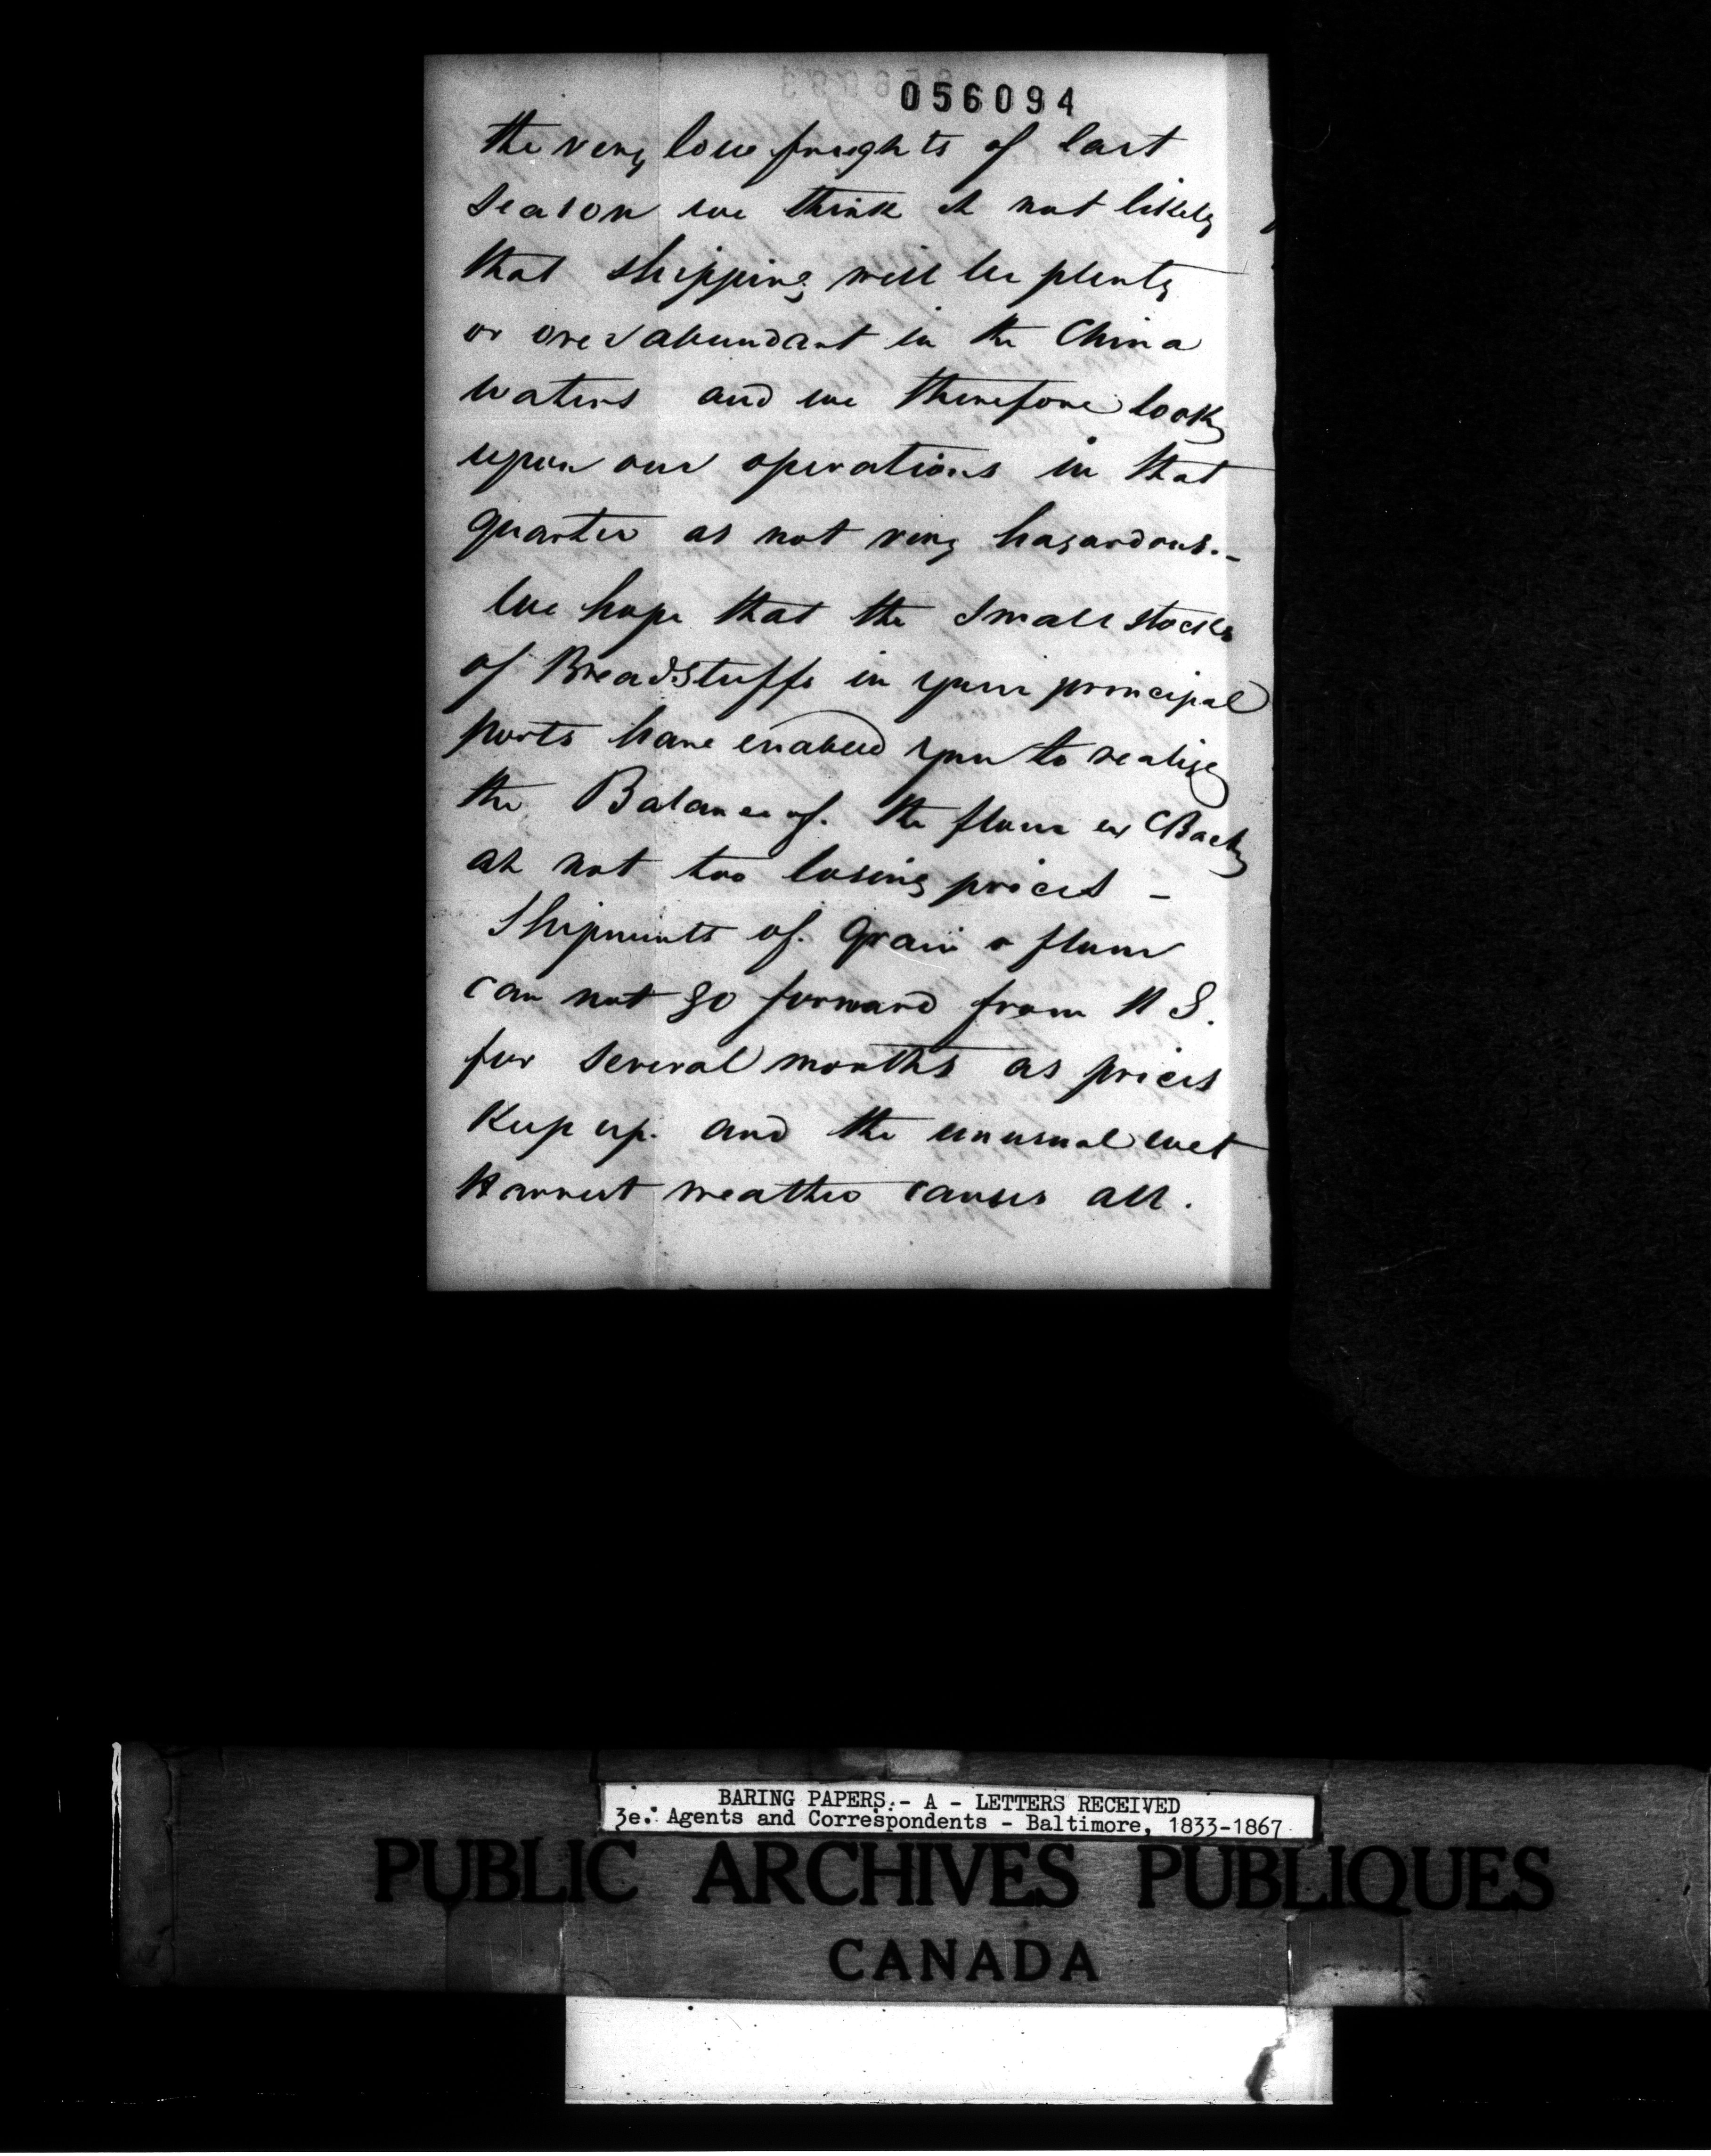 056094
the very low freights of last
season we think it not likely
that shipping will be plenty
or overabundant in the China
waters and we therefore look
upon our operations in that
quarter as not very hazardous.-
We hope that the small stocks
of Breadstuffs in your principal
ports have enabled you to realize
the Balance of the flour ex
at not too losing prices -
Shipments of Grain & flour
can not go forward from U S.
for several months as prices
Keep up. and the unusual wet
Harvest weather causes all.
BARING PAPERS.- A - LETTERS RECEIVED
3e. Agents and Correspondents - Baltimore, 1833-1867
PUBLIC ARCHIVES PUBLIQUES
CANADA